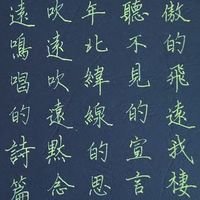 傲的飛遠我棲
聽不見的宣言
年北緯線的思
吹遠吹遠默念
遠鳴唱的詩篇